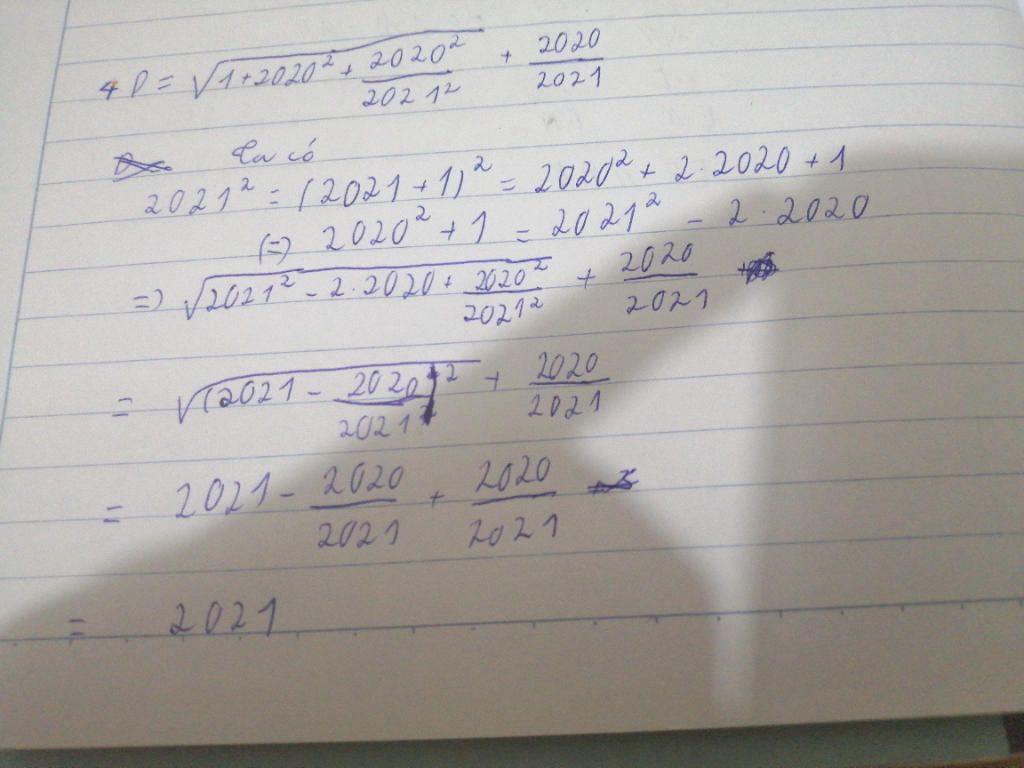 4 D = √(1 + 2020² + 2020²/2021²) + 2020/2021
Ta có
2021² = (2021 + 1)² = 2020² + 2 · 2020 + 1
(=) 2020² + 1 = 2021² - 2 · 2020
=) √(2021² - 2 · 2020 + 2020²/2021²) + 2020/2021
= √((2021 - 2020/2021)²) + 2020/2021
= 2021 - 2020/2021 + 2020/2021
= 2021